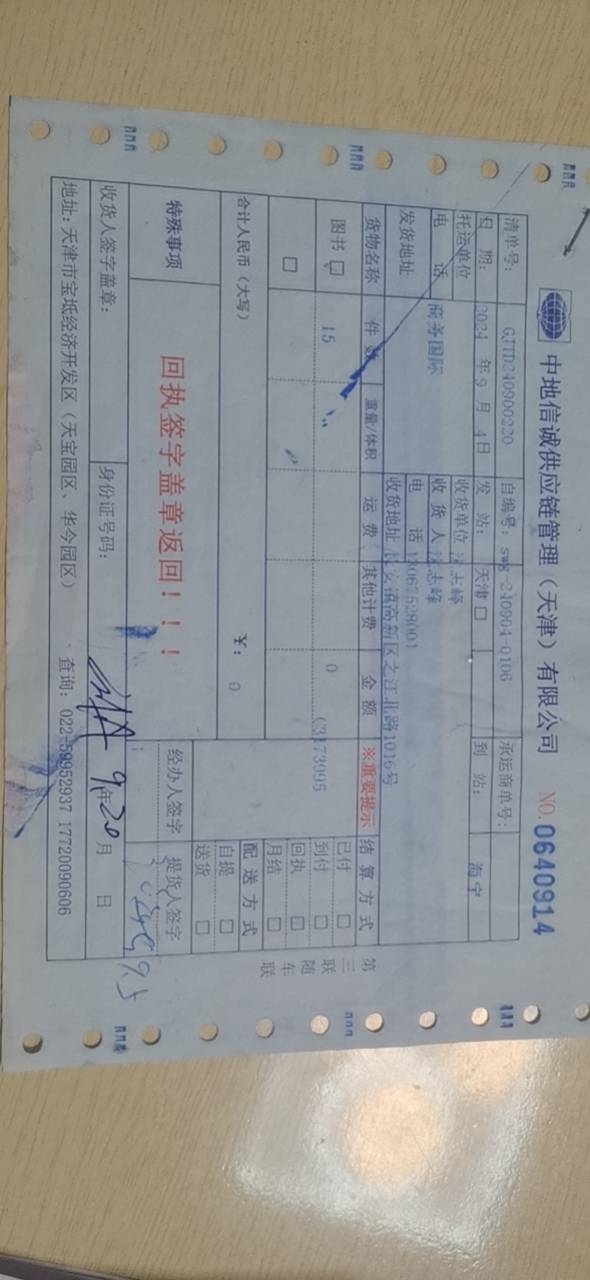 中地信诚供应链管理（天津）有限公司 NO.0640914
清单号： GJTD240900220 自编号：swg-240904-0106 承运商单号：
日 期： 2024 年 9 月 4日 发 站： 天津 到 站： 海宁
托运单位 收货单位 志峰
电 话 商务国际 收 货 人 志峰
发货地址 电 话 13067528001
收货地址 长安镇高新区之江北路1016号
货物名称 件 数 重量/体积 运 费 其他计费 金 额 ※重要提示 结 算 方 式
图书 15 0 已付
到付
回执
月结
合计人民币（大写） ￥： 0 配 送 方 式
自提
送货
特殊事项 回执签字盖章返回！！！ 经办人签字 提货人签字
收货人签字盖章： 身份证号码： 9 年 20 月 日
地址：天津市宝坻经济开发区（天宝园区、华今园区） 查询：022-59952937 17720090606
第三联 随车联